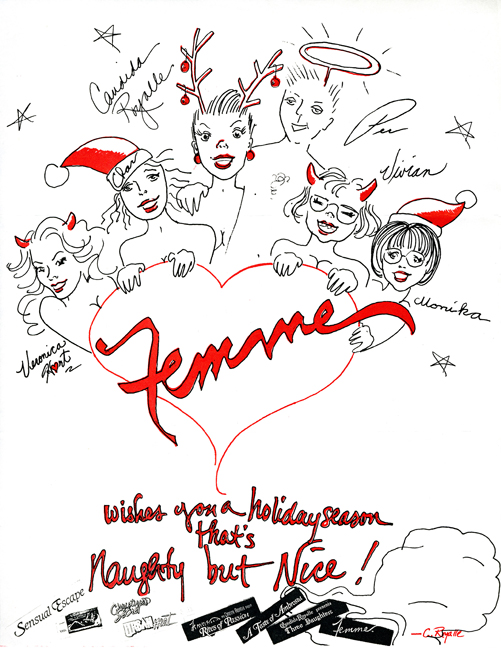 Candida
Royalle
Per
Vivian
Clair
Monika
Veronica
Hart
Femme
wishes you a holiday season
that's
Naughty but Nice!
Sensual Escape
Christine's
Secret
URBAN HEAT
Femme
Rites of Passion
A Taste of Ambrosia
Candida Royalle presents
Three Daughters
Femme
C. Royalle